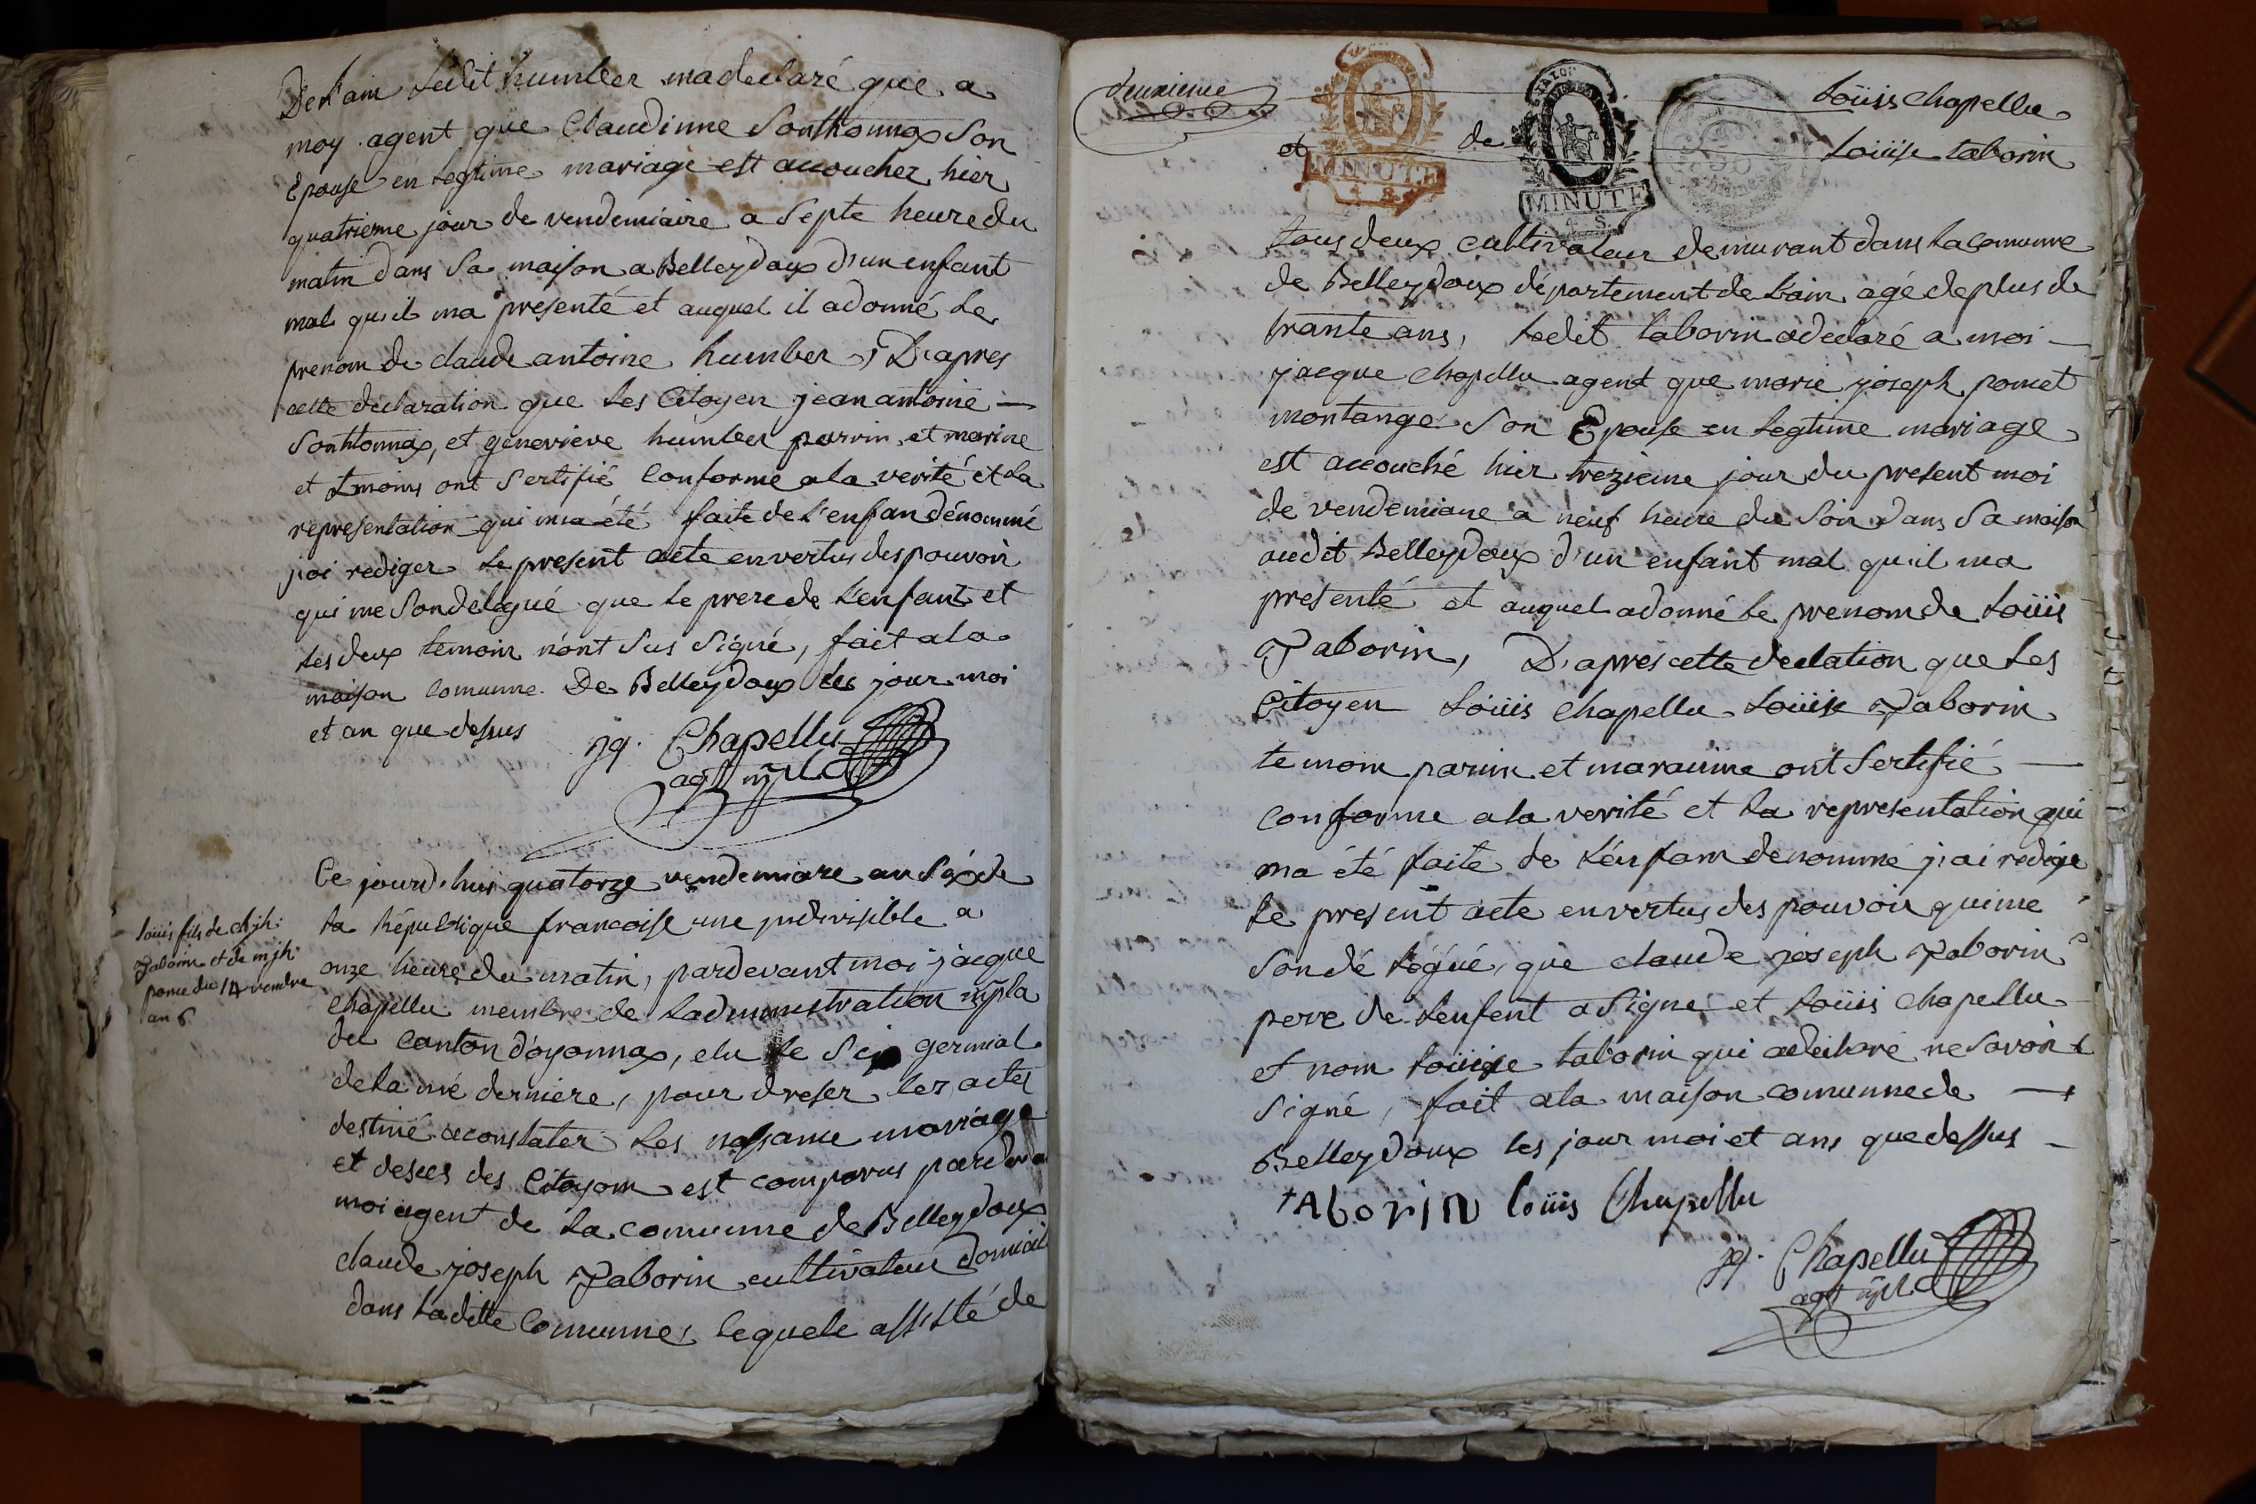 De l'ain ledit humber ma declaré que a
moy agent que Claudinne Sonthonnax Son
Epouse en legtime mariage est accoucher hier
quatrieme jour de vendemiaire a Septe heure du
matin dans Sa maison a Belleydoux d'un enfant
mal quil ma presenté et auquel il a donné le
prenom de claude antoine humber, D'apres
cette declaration que les Citoyen jean antoine —
Sonthonnax, et genevieve humber parrin et marine
et temoins ont Sertifié Conforme a la verité et la
representation qui ma été faite de l'enfan dénommé
j'ai rediger le present acte en vertus des pouvoir
qui me Son delegué que le prere de l'enfant et
les deux temoin n'ont Sus Signé, fait a la
maison Comunne De Belleydoux les jour moi
et an que dessus
jq. Chapellu
agt mpl
Ce jourd'hui quatorze vendemiare an Six de
la République francoise une indivisible a
onze heure du matin, pardevant moi jacque
Chapellu membre de Ladministration mpla
du Canton d'oyonnax, elu le Sei germial
de la née derniere, pour dreser les actes
destiné a constater les nassance mariage
et deses des Citoyom est comparus pardeva
moi agent de la comunne de Belleydoux
claude joseph Taborin cultivateur domicil
dans ladite Comunne, lequele assisté de
louis fils de cl jh:
Taborin et de m jh:
pome du 14 vendre
an 6
deuxieme
Loüis chapellu
et de Loüise taborin
MINUTE
MINUTE
tous deux cultivateur demurant dans la comunne
de Belleydoux département de l'ain agé de plus de
trante ans, ledit taborin a declaré a moi —
jacque Chapellu agent que marie joseph pomet
montange Son Epouse en legtime mariage
est accouché hier trezieme jour du present moi
de vendemiaire a neuf heure du Soir dans Sa maison
audit Belleydoux d'un enfant mal quil ma
presenté et auquel a donné le prenom de Loüis
Taborin, D'apres cette declation que les
Citoyen Loüis Chapellu Loüise Taborin
temoin parin et maraînne ont Sertifié —
conforme a la verité et la representation qui
ma été faite de l'enfam denommé j'ai redige
le present acte en vertus des pouvoir qui me
Son dé légué, que claude joseph Taborin
pere de l'enfent a Signe et Loüis Chapellu
et nom Loüise taborin qui a declaré ne Savoir
Signé, fait a la maison comunne de —
Belleydoux les jour moi et ans que dessus —
tAborin loüis Chapellu
jq. Chapellu
agt mpl